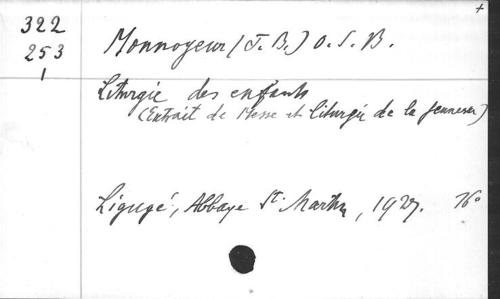 322
253
1
Monnoyeur (J. B.) O. S. B.
+
Liturgie des enfants
(Extrait de Messe et liturgie de la jeunesse)
Ligugé, Abbaye St. Martin, 1927. 16°